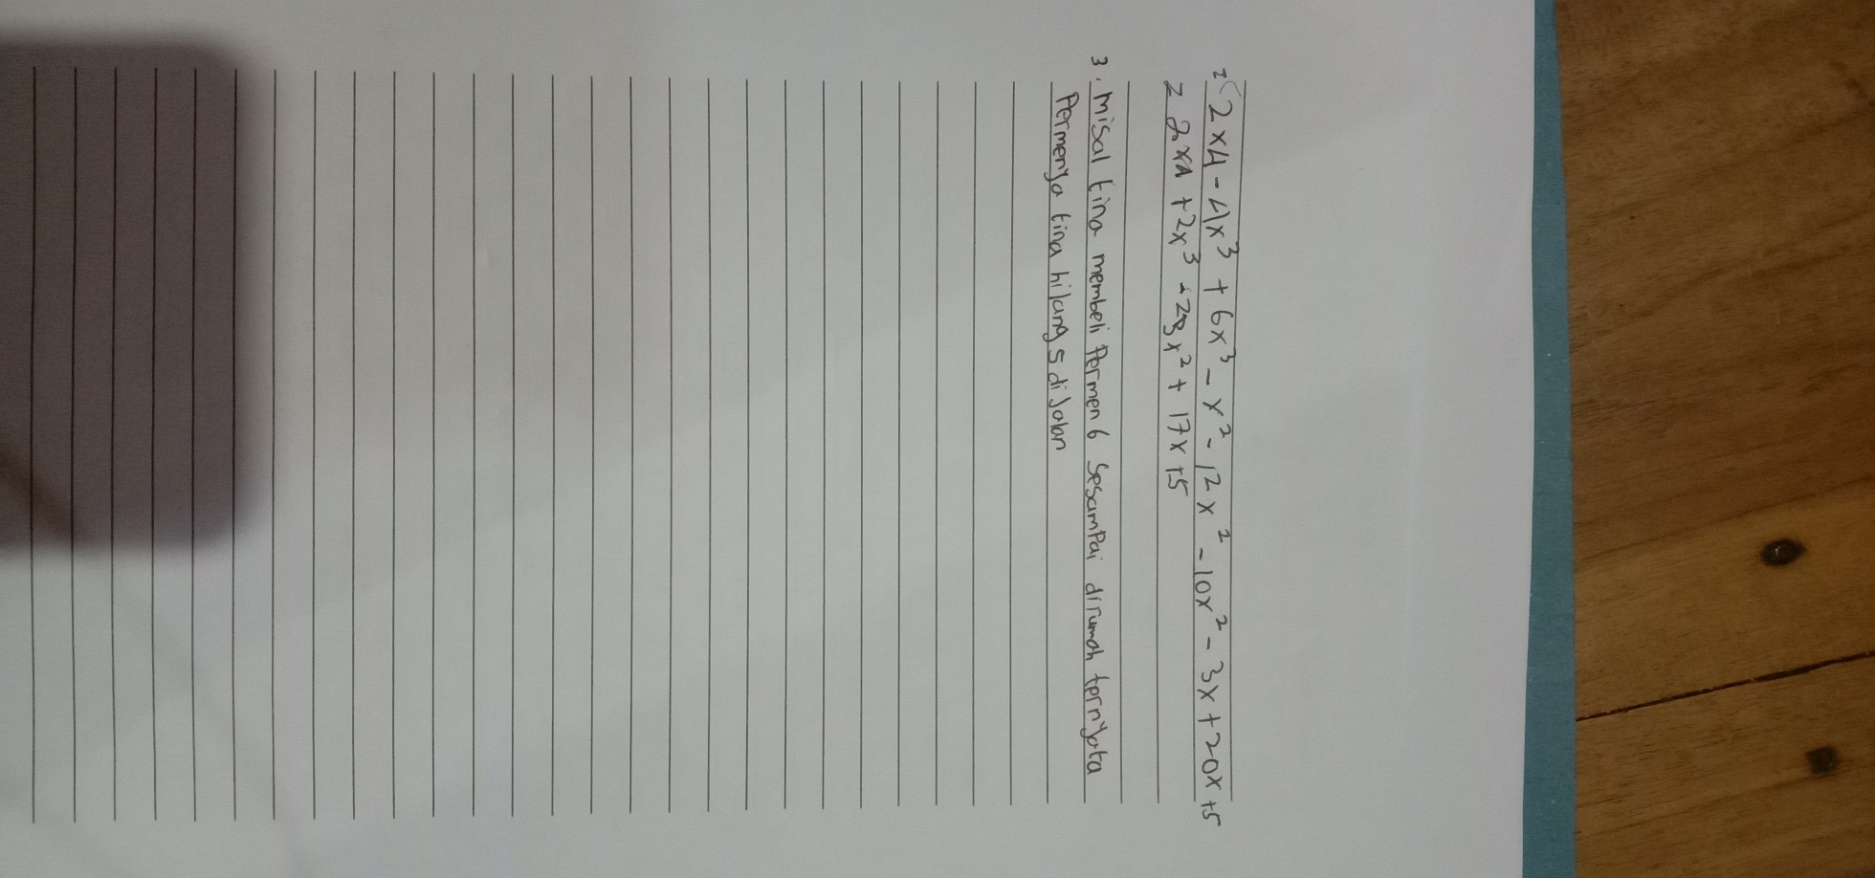 = 2x4 - 4x³ + 6x³ - x² - 12x² - 10x² - 3x + 20x + 5
= 2x4 + 2x³ - 23x² + 17x + 5
3. Misal tina membeli Permen 6 Sesampai dirumah ternyata
Permenya tina hilang 5 di Jalan